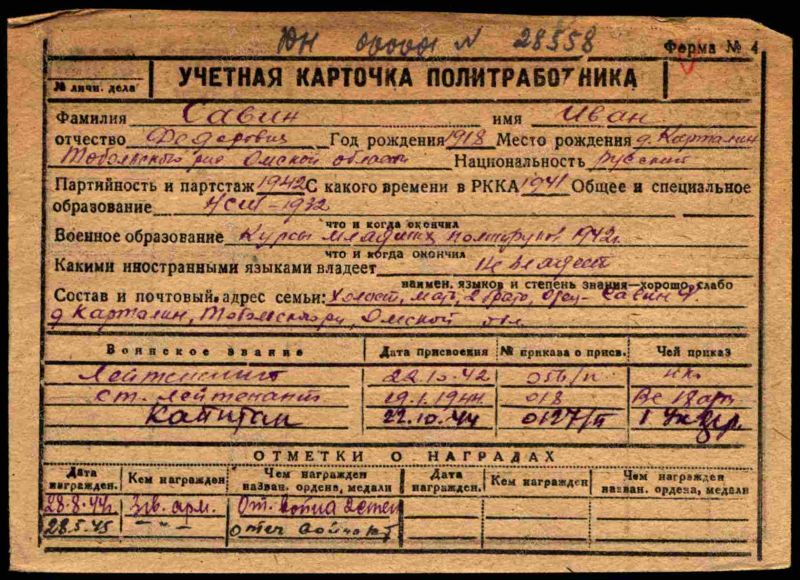 ЮН 00001 N 28558
Форма № 4
№ личн. дела
УЧЕТНАЯ КАРТОЧКА ПОЛИТРАБОТНИКА
Фамилия Савин имя Иван
отчество Федорович Год рождения 1918 Место рождения д. Карталин
Тобольского р-на Омской области Национальность русский
Партийность и партстаж 1942 С какого времени в РККА 1941 Общее и специальное
образование НСШ-1932
что и когда окончил
Военное образование Курсы младших политруков 1942г.
что и когда окончил
Какими иностранными языками владеет Не владеет
наимен. языков и степень знания—хорошо, слабо
Состав и почтовый адрес семьи: Холост, мать, 2 брата, отец - Савин Ф.
д Карталин, Тобольского р, Омской обл
Воинское звание Дата присвоения № приказа о присв. Чей приказ
Лейтенант 22.10.42 056/п
ст. лейтенант 29.1.1944 018 18 арм
Капитан 22.10.44 0127/п 1 Укр
ОТМЕТКИ О НАГРАДАХ
Дата награжден. Кем награжден Чем награжден назван. ордена, медали Дата награжден. Кем награжден Чем награжден назван. ордена, медали
28.8.44г. 3гв. арм. От. война 2 степ
28.5.45 - " - отеч войны